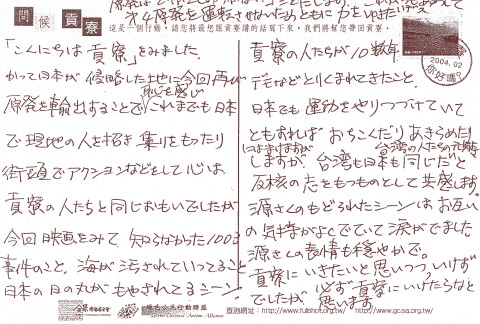 問候 貢寮
第4原発を運転させないためともに力を
這是一個行動，請您將最想跟貢寮講的話寫下來，我們將幫您帶回貢寮。
「こんにちは貢寮」をみました。
かって日本が侵略した土地に今回再び
恥を感じ
原発を輸出することで これまでも日本
で現地の人を招き 集りをもったり
街頭でアクションなどをして心は
貢寮の人たちと同じおもいでしたが
今回映画をみて 知らなかった1003
事件のこと、海が汚されていってること
日本の日の丸がもやされてるシーン
貢寮の人たちが10数年
デモなどとりくまれてきたこと、
日本でも運動をやりつづけていて
ともすれば おちこんだり あきらめたり
しますが、台湾も日本も同じだと
台湾の人たちの
反核の志をもつものとして共感します。
源さんのもどられたシーンはお互い
の気持がよくでていて涙がでました
源さんの表情も穏やかで。
貢寮にいきたいと思いつついけず
でしたが 必ず貢寮にいけたらなと
思います。
2004.02
你好嗎?
綠色公民行動聯盟
Green Citizens' Action Alliance
查詢網址：http://www.fullshot.org.tw/ http://www.gcaa.org.tw/